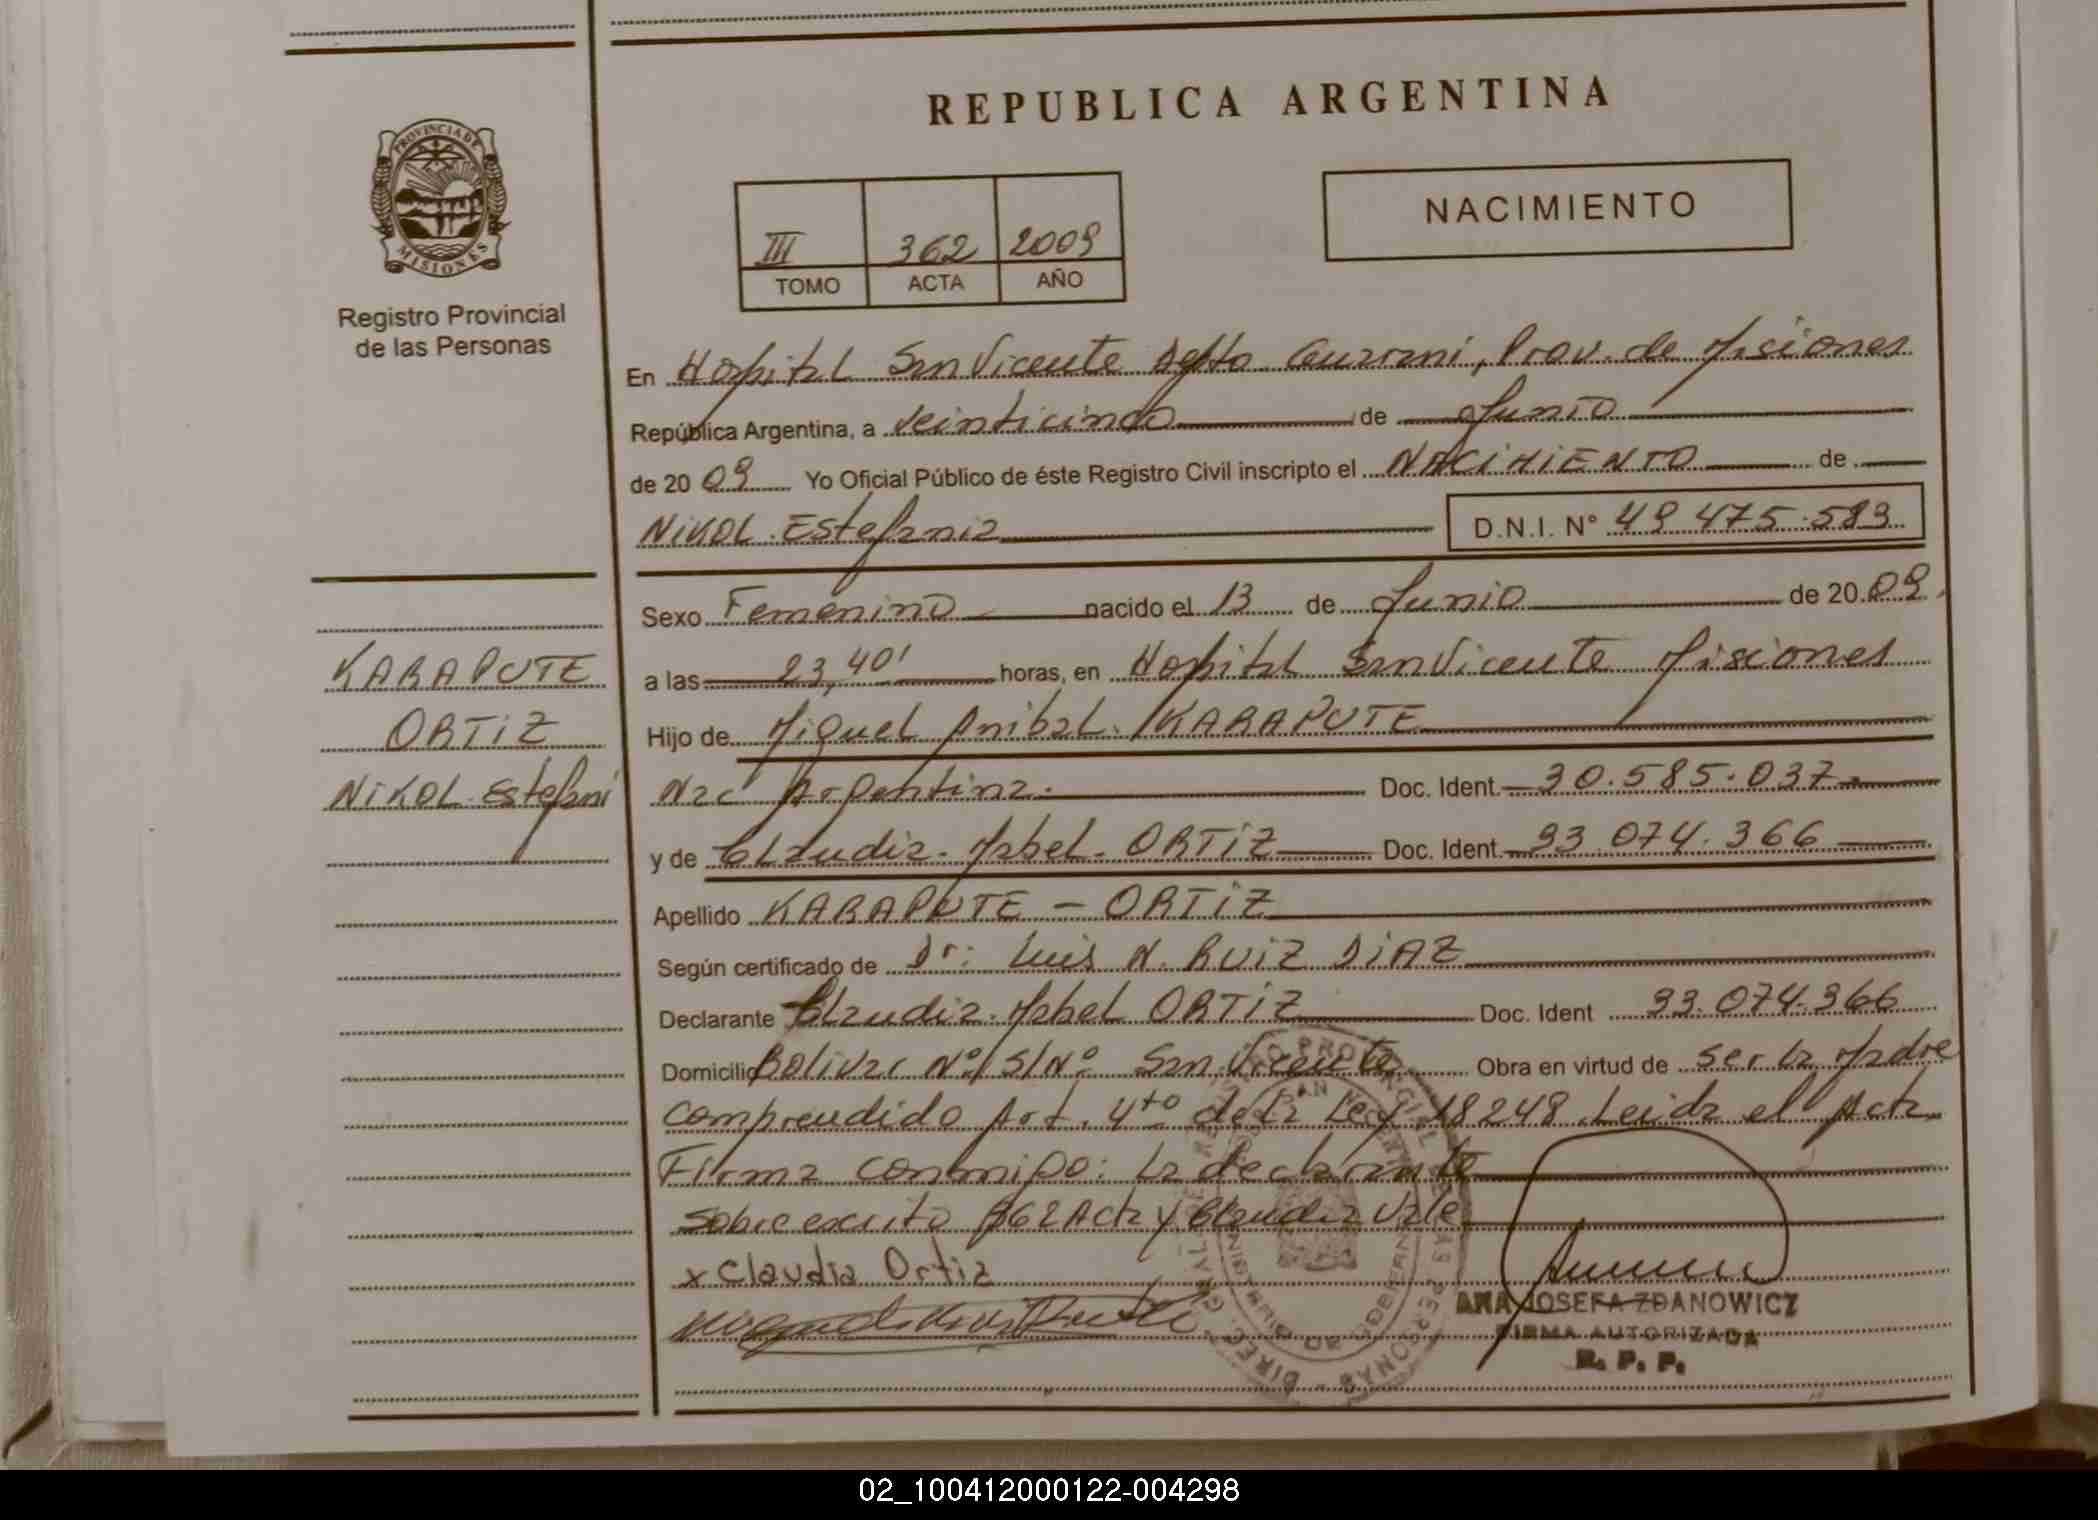 REPUBLICA ARGENTINA
PROVINCIA DE
MISIONES
Registro Provincial
de las Personas
NACIMIENTO
III 362 2009
TOMO ACTA AÑO
En Hospital San Vicente Depto Guarani, Prov. de Misiones
República Argentina, a Veinticinco de Junio
de 2009 Yo Oficial Público de éste Registro Civil inscripto el NACIMIENTO de
Nikol Estefania D.N.I. N° 49 475.583
Sexo Femenino nacido el 13 de Junio de 2009
a las 23,40' horas, en Hospital San Vicente Misiones
Hijo de Miguel Anibal KARAPUTE
Nac Argentina. Doc. Ident. 30.585.037
y de Claudia Mabel ORTIZ Doc. Ident. 33.074.366
Apellido KARAPUTE - ORTIZ
Según certificado de Dr: Luis N. RUIZ DIAZ
Declarante Claudia Mabel ORTIZ Doc. Ident 33.074.366
Domicilio Bolivar N° S/N° San Vicente Obra en virtud de ser la Madre
comprendido Art. 4to de la Ley 18248 Leida el Acta
Firma conmigo: la declarante
Sobre escrito 362 Acta y Claudia Vale
x Claudia Ortiz
ANA JOSEFA ZDANOWICZ
FIRMA AUTORIZADA
R. P. P.
KARAPUTE
ORTIZ
Nikol Estefani
02_100412000122-004298